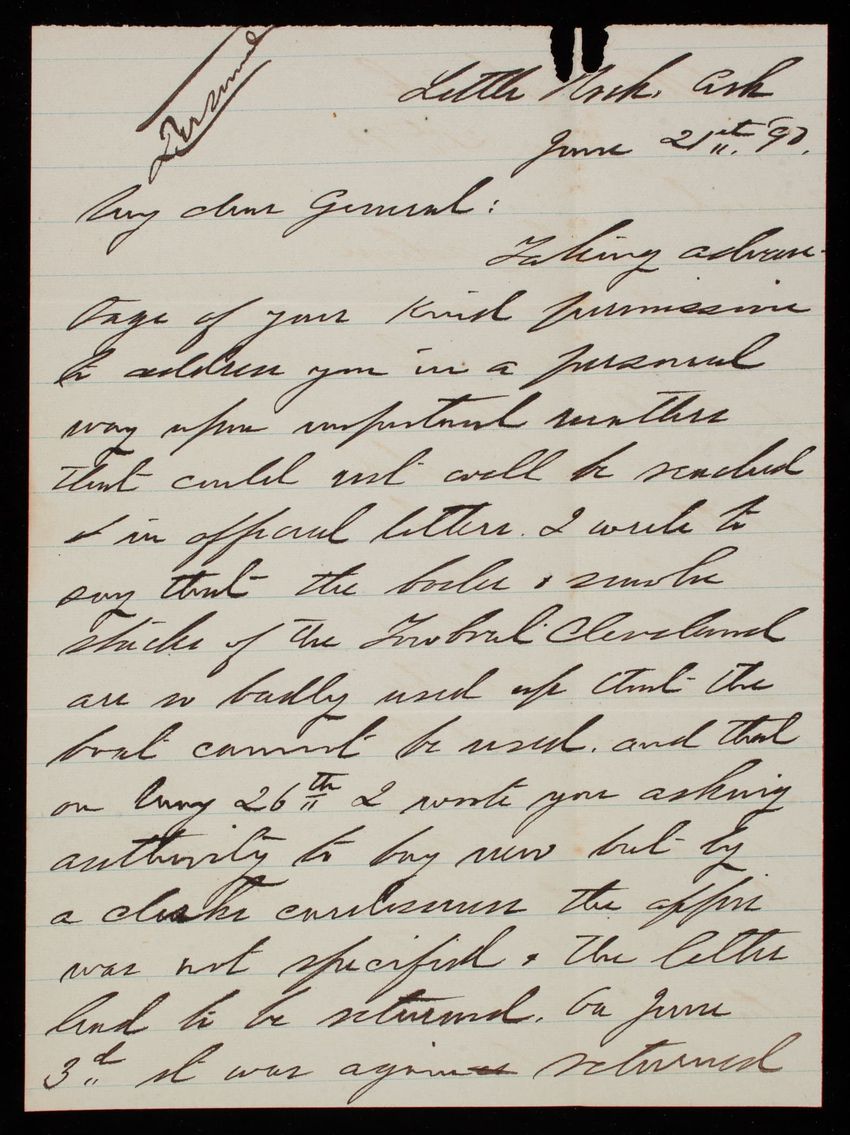 Personal
Little Rock, Ark
June 21st, '90.
My dear General:
Taking advan-
tage of your kind permission
to address you in a personal
way upon important matters
that could not well be reached
in official letters. I write to
say that the boiler & smoke
stacks of the Cleveland
are so badly used up that the
boat cannot be used, and that
on May 26th I wrote you asking
authority to buy new but by
a clerks carelessness the
was not specified & the letter
had to be returned. On June
3d it was again returned